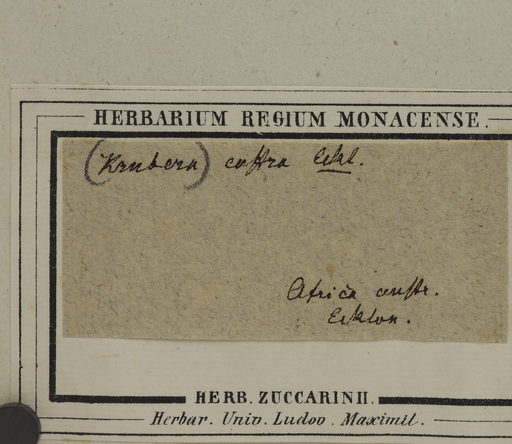 HERBARIUM REGIUM MONACENSE.
(Krubera) caffra Eckl.
Africa austr.
Ecklon.
HERB. ZUCCARINII.
Herbar. Univ. Ludov. Maximil.